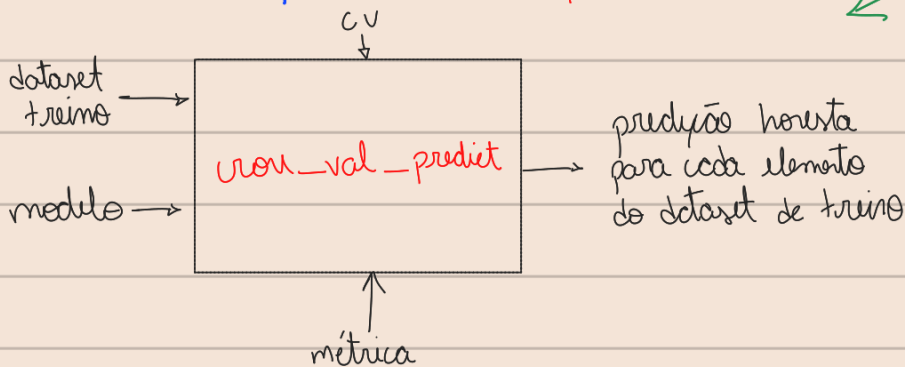 CV
dataset
treino
modelo
cross_val_predict
predição honesta
para cada elemento
do dataset de treino
métrica